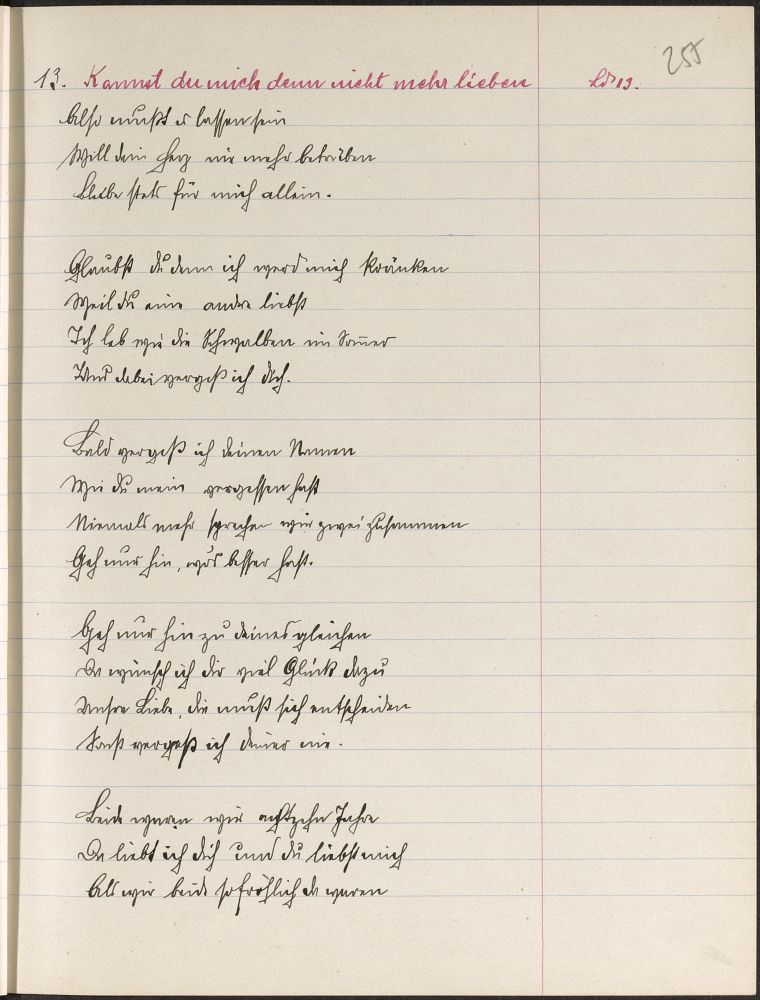 255
13. Kannst du mich denn nicht mehr lieben Ld 13.
Also mußt es lassen sein
Will dein Herz nie mehr betrüben
Bleibe stets für mich allein.
Glaubst du denn ich werd mich kränken
Weil du eine andre liebst
Ich leb wie die Schwalben im Som̅er
Und dabei vergeß ich dich.
Bald vergeß ich deinen Namen
Wie du mein vergessen hast
Niemals mehr sprechen wir zwei zusammen
Geh nur hin, wo's besser hast.
Geh nur hin zu deines gleichen
Da wünsch ich dir viel Glück dazu
Unsre Liebe, die muß sich entscheiden
Sonst vergeß ich deiner nie.
Beide waren wir achtzehn Jahre
Da liebt ich dich und du liebst mich
Als wir beide so fröhlich da waren